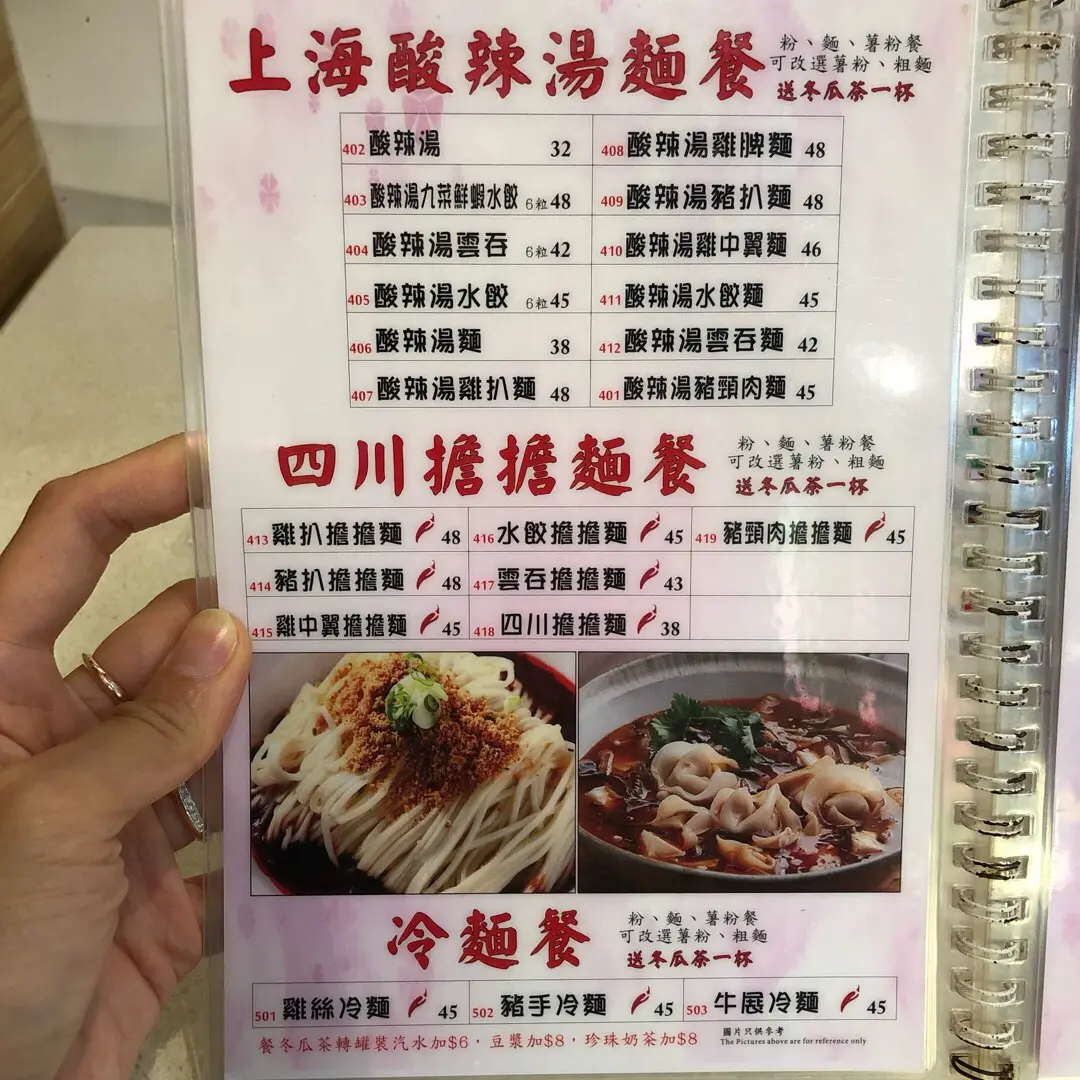 上海酸辣湯麵餐
粉、麵、薯粉餐
可改選薯粉、粗麵
送冬瓜茶一杯
402 酸辣湯 32
408 酸辣湯雞脾麵 48
403 酸辣湯九菜鮮蝦水餃 6粒 48
409 酸辣湯豬扒麵 48
404 酸辣湯雲吞 6粒 42
410 酸辣湯雞中翼麵 46
405 酸辣湯水餃 6粒 45
411 酸辣湯水餃麵 45
406 酸辣湯麵 38
412 酸辣湯雲吞麵 42
407 酸辣湯雞扒麵 48
401 酸辣湯豬頸肉麵 45
四川擔擔麵餐
粉、麵、薯粉餐
可改選薯粉、粗麵
送冬瓜茶一杯
413 雞扒擔擔麵 48
416 水餃擔擔麵 45
419 豬頸肉擔擔麵 45
414 豬扒擔擔麵 48
417 雲吞擔擔麵 43
415 雞中翼擔擔麵 45
418 四川擔擔麵 38
冷麵餐
粉、麵、薯粉餐
可改選薯粉、粗麵
送冬瓜茶一杯
501 雞絲冷麵 45
502 豬手冷麵 45
503 牛展冷麵 45
餐冬瓜茶轉罐裝汽水加$6，豆漿加$8，珍珠奶茶加$8
圖片只供參考
The Pictures above are for reference only